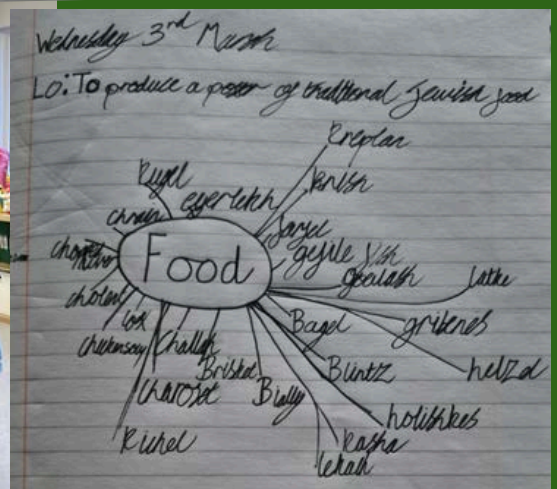 Wednesday 3rd March
LO: To produce a poster of traditional Jewish food
Food
Kreplan
Knish
farfel
gefile fish
goulash
latke
gribenes
helzel
Bagel
Blintz
holishkes
Kasha
lekah
Bialy
Brisket
Challah
Charoset
Kichel
lox
chickensoup
cholent
chopped
chrain
Kugel
eyerlekh